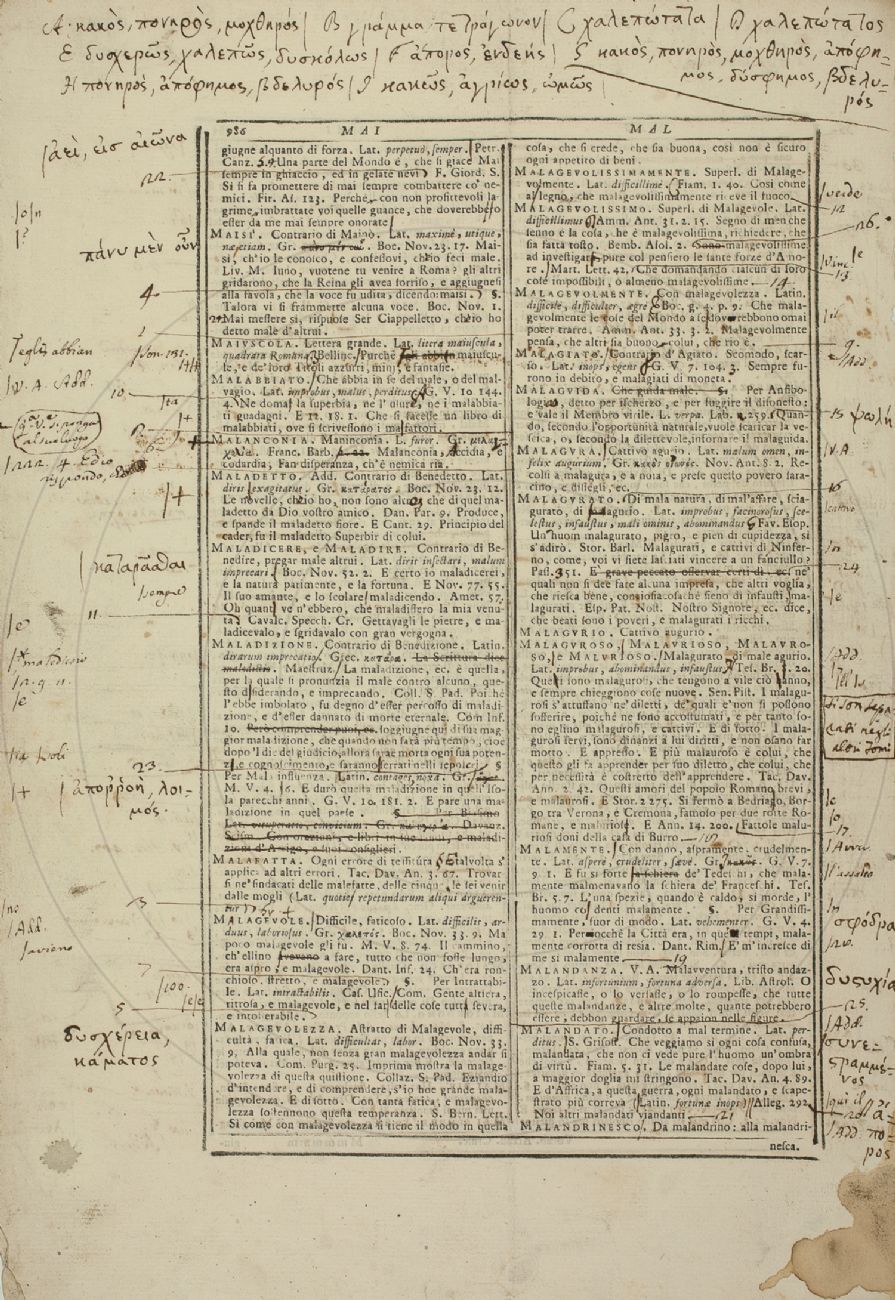 A. κακὸς, πονηρὸς, μοχθηρός | B γράμμα τετράγωνον | C χαλεπώτατα | D χαλεπώτατος
E δυσχερῶς, χαλεπῶς, δυσκόλως | F ἄπορος, ἐνδεής | G κακὸς, πονηρὸς, μοχθηρὸς, ἀπόφη-
μος, δύσφημος, βδελυ-
ρός
H πονηρὸς, ἀπόφημος, βδελυρός | I κακῶς, ἀγρίως, ὠμῶς
986 MAI MAL
ἀεὶ, εἰς αἰῶνα
22.
πάνυ μὲν οὖν
4.
10.
καταρᾶσθαι
11.
23.
ἀποῤῥοὴ, λοι-
μός.
7
5
δυσχέρεια,
κάματος
giugne alquanto di forza. Lat. perpetuò, semper. Petr.
Canz. Una parte del Mondo è, che si giace Mai
sempre in ghiaccio, ed in gelate nevi F. Giord. S.
Si fa promettere di mai sempre combattere co' ne-
mici. Fir. As. 123. Perchè con non profittevoli la-
grime imbrattate voi quelle guance, che doverebbero
ester da me mai sempre onorate
MAISI'. Contrario di Mainò. Lat. maximè, utique,
næ etiam. Gr. Boc. Nov. 23. 17. Mai-
sì, ch'io le conosco, e confessovi, ch'io feci male.
Liv. M. Iuno, vuotene tu venire a Roma? gli altri
gridarono, che la Reina gli avea sorriso, e aggiugnesi
alla favola, che la voce fu udita, dicendo: maisì. §.
Talora vi si frammette alcuna voce. Boc. Nov. 1.
Mai messere sì, rispuose Ser Ciappelletto, ch'io ho
detto male d'altrui.
MAIUSCOLA. Lettera grande. Lat. litera maiuscula,
quadrata Romana. Bellinc. Purchè gli abbin maiuscu-
le, e de' loro Titoli azzurri, mini, e fantasie.
MALABBIATO. Che abbia in se del male, o del mal-
vagio. Lat. improbus, malus, perditus G. V. 10. 144.
Ne doma la superbia, ne l'usura, ne i malabbia-
ti guadagni. E 12. 18. 1. Che si facesse un libro di
malabbiati, ove si scrivessono i malfattori.
MALANCONIA. Maninconia. L. furor. Gr. μελαγ-
χολία. Franc. Barb. Malanconia, Accidia, e
codardia; Fan disperanza, ch'è nemica ria.
MALADETTO. Add. Contrario di Benedetto. Lat.
diris exagitatus. Gr. κατάρατος. Boc. Nov. 23. 12.
Le novelle, ch'io ho, non sono altro che di quel ma-
ladetto da Dio vostro amico. Dan. Par. 9. Produce,
e spande il maladetto fiore. E Cant. 29. Principio del
cader, fu il maladetto Superbir di colui.
MALADICERE, e MALADIRE. Contrario di Be-
nedire, pregar male altrui. Lat. diris insectari, malum
imprecari. Boc. Nov. 52. 2. E certo io maladicerei,
e la natura parimente, e la fortuna. E Nov. 77. 55.
Il suo amante, e lo scolare maladicendo. Amet. 57.
Oh quanti ve n'ebbero, che maladissero la mia venu-
ta Cavalc. Specch. Cr. Gettavagli le pietre, e ma-
ladicevalo, e sgridavalo con gran vergogna.
MALADIZIONE. Contrario di Benedizione. Latin.
dirarum imprecatio. Grec. κατάρα. La Scrittura dice
maladictio. Maestruz. La maladizione, ec. è quella,
per la quale si pronunzia il male contro alcuno, que-
sto disiderando, e imprecando. Coll. S. Pad. Poi hè
l'ebbe imbolato, fu degno d'esser percosso di maladi-
zione, e d'esser dannato di morte eternale. Com Inf.
10. Però comprender puoi, ec. soggiugne quì di sua mag-
gior maladizione, che quando non sarà più tempo, cioè
dopo 'l dìe del giudicio, allora sarae morta ogni sua poten-
za, e cognoscimento, e saranno serrati nelli sepolcri. §
Per Mala influenza. Latin. contages, noxa. Gr.
M. V. 4. 6. E durò questa maladizione in quell'Iso-
la parecchi anni. G. V. 10. 181. 2. E pare una ma-
ladizione in quel paese. §. Per Biasimo
MALAFATTA. Ogni errore di tessitura E talvolta s'
applica ad altri errori. Tac. Dav. An. 3. 67. Trovar-
si ne' sindacati delle malefatte, delle cinque, le sei venir
dalle mogli (Lat. quoties repetundarum aliqui arguerentur
MALAGEVOLE. Difficile, faticoso. Lat. difficilis, ar-
duus, laboriosus. Gr. χαλεπός. Boc. Nov. 33. 9. Ma
poco malagevole gli fu. M. V. 8. 74. Il cammino,
ch'ellino avevano a fare, tutto che non fosse lungo,
era aspro, e malagevole. Dant. Inf. 24. Ch'era ron-
chioso, stretto, e malagevole §. Per Intrattabi-
le. Lat. intractabilis. Cas. Ufic. Com. Gente altiera,
ritrosa, e malagevole, e nel far delle cose tutta severa,
e intollerabile.
MALAGEVOLEZZA. Astratto di Malagevole, diffi-
cultà, fatica. Lat. difficultas, labor. Boc. Nov. 33.
9. Alla quale, non senza gran malagevolezza andar si
poteva. Com. Purg. 25. Imprima mostra la malage-
volezza di questa quistione. Collaz. S. Pad. Eziandio
d'intendere, e di comprendere, s'io hoe grande mala-
gevolezza. E di sotto. Con tanta fatica, e malagevo-
lezza sostennono questa temperanza. S. Bern. Lett.
Sì come con malagevolezza si tiene il modo in quella
cosa, che si crede, che sia buona, così non è sicuro
ogni appetito di beni.
MALAGEVOLISSIMAMENTE. Superl. di Malage-
volmente. Lat. difficillimè. Fiam. 1. 40. Così come
al legno, che malagevolissimamente riceve il fuoco.
MALAGEVOLISSIMO. Superl. di Malagevole. Lat.
difficillimus Amm. Ant. 31. 2. 15. Segno di men che
senno è la cosa, che è malagevolissima, richiedere, che
sia fatta tosto. Bemb. Asol. 2. Sono malagevolissime
ad investigare pure col pensiero le sante forze d'Amo-
re. Mart. Lett. 42. Che domandando alcun di loro
cose impossibili, o almeno malagevolissime. 14.
MALAGEVOLMENTE. Con malagevolezza. Latin.
difficilè, difficulter, ægrè Boc. g. 4. p. 9. Che mala-
gevolmente le cose del Mondo a se doverebbono omai
poter trarre. Amm. Ant. 33. 3. 2. Malagevolmente
pensa, che altri sia buono colui, che rio è.
MALAGIATO. Contrario d'Agiato. Scomodo, scar-
so. Lat. inops, egens G. V. 7. 104. 3. Sempre fu-
rono in debito, e malagiati di moneta.
MALAGUIDA. Che guida male. §. Per Anfibo-
logia, detto per ischerzo, e per fuggire il disonesto:
e vale il Membro virile. L. verpa. Lab. n. 259. Quan-
do, secondo l'opportunità naturale, vuole scaricar la ve-
scica, o, secondo la dilettevole, infornare il malaguida.
MALAGURA. Cattivo agurio. Lat. malum omen, in-
felix augurium. Gr. κακὸς οἰωνός. Nov. Ant. 8. 2. Re-
colsi a malagura, e a noia, e prese questo povero sara-
cino, e dissegli, ec.
MALAGURATO. Di mala natura, di mal'affare, scia-
gurato, di malagurio. Lat. improbus, facinorosus, sce-
lestus, infaustus, mali ominis, abominandus Fav. Esop.
Un'huom malagurato, pigro, e pien di cupidezza, si
s'adirò. Stor. Barl. Malagurati, e cattivi di Ninfer-
no, come, voi vi siete lasciati vincere a un fanciullo?
Pass. 351. E grave peccato osservar certi dì, ec. ne'
quali non si dee fare alcuna impresa, che altri voglia,
che riesca bene, conciossiacosachè sieno di infausti, ma-
lagurati. Esp. Pat. Nost. Nostro Signore, ec. dice,
che beati sono i poveri, e malagurati i ricchi.
MALAGURIO. Cattivo augurio.
MALAGUROSO, MALAURIOSO, MALAURO-
SO, e MALURIOSO. Malagurato di male agurio.
Lat. improbus, abominandus, infaustus Tes. Br. 3. 20.
Questi sono malagurosi, che tengono a vile ciò hanno,
e sempre chieggiono cose nuove. Sen. Pist. I malagu-
rosi s'attuffano ne' diletti, de' quali e' non si possono
sofferire, poichè ne sono accostumati, e per tanto so-
no eglino malaurosi, e cattivi. E di sotto. I malau-
gurosi servi, sono dinanzi a lui diritti, e non osano far
motto. E appresso. E più malauroso è colui, che
questo gli fa apprender per suo diletto, che colui, che
per necessità è costretto dell'apprendere. Tac. Dav.
Ann. 2. 42. Questi amori del popolo Romano brevi,
e malaurosi. E Stor. 2 275. Si fermò a Bedriago, Bor-
go tra Verona, e Cremona, famoso per due rotte Ro-
mane, e maluriose. E Ann. 14. 200. Fattole malu-
riosi doni della casa di Burro
MALAMENTE. Con danno, aspramente, crudelmen-
te. Lat. asperè, crudeliter, sævè. Gr. κακῶς. G. V. 7.
9 1. E fu sì forte la schiera de' Tedeschi, che mala-
mente malmenavano la schiera de' Franceschi. Tes.
Br. 5. 7. L'una spezie, quando è caldo, si morde, l'
huomo con denti malamente. §. Per Grandissi-
mamente, fuor di modo. Lat. vehementer. G. V. 4.
29 1. Perciocchè la Città era, in que' tempi, mala-
mente corrotta di resia. Dant. Rim. E' m'incresce di
me sì malamente 19
MALANDANZA. V. A. Malavventura, tristo andaz-
zo. Lat. infortunium, fortuna adversa. Lib. Astrol. O
incespicasse, o lo versasse, o lo rompesse, che tutte
queste malandanze, e altre molte, quante potrebbero
essere, debbon guardare, se appaion nelle figure.
MALANDATO. Condotto a mal termine. Lat. per-
ditus. S. Grisost. Che veggiamo sì ogni cosa confusa,
malandata, che non ci vede pure l'huomo un'ombra
di virtù. Fiam. 5. 31. Le malandate cose, dopo lui,
a maggior doglia mi stringono. Tac. Dav. An. 4. 89.
E d'Affrica, a questa guerra, ogni malandato, e scape-
strato più correva (Latin. fortunæ inops) Alleg. 292
Noi altri malandati viandanti 21
MALANDRINESCO. Da malandrino: alla malandri-
nesca.
12
26.
13
9.
15 ψωλή
V.A.
16
24
Add.
17.
σφόδρα
δυςυχία
25.
Add.
συνε-
τραμμέ-
νος
ἄ-
πο-
ρος